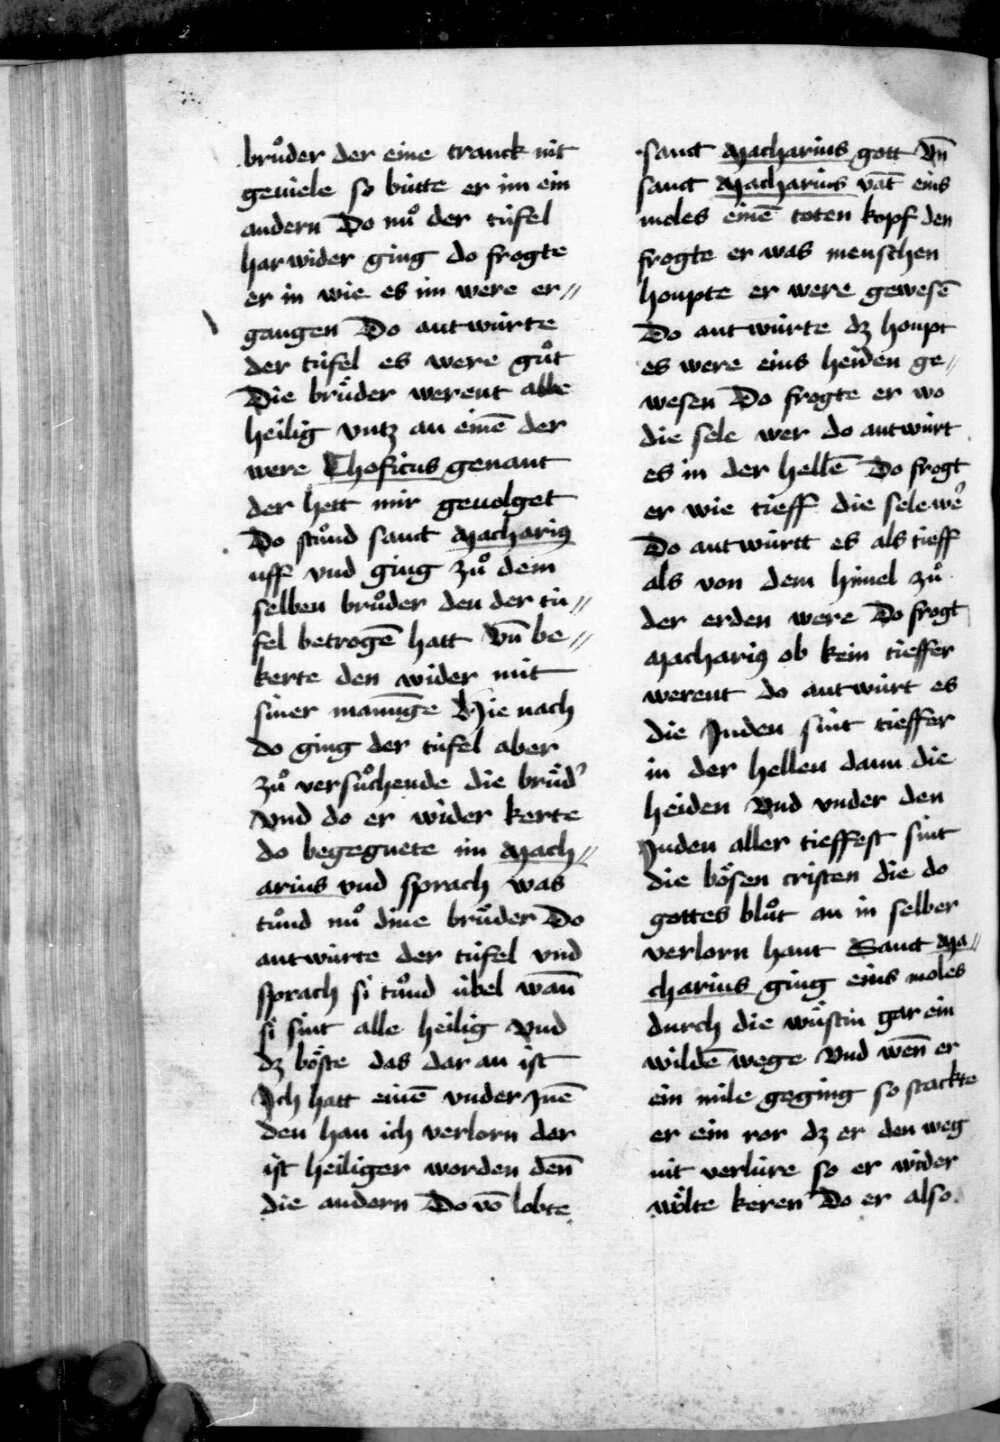 bruͦder der eine tranck nit
geuiele so butte er im ein
andern Do nuͦ der tufel
har wider ging do frogte
er in wie es im were er〃
gangen Do antwurte
der tufel es were guͦt
Die bruͤder werent alle
heilig vntz an einē der
were Thofitus genant
der hett mir geuolget
Do stuͦnd sanct Macharius
uff vnd ging zuͦ dem
selben bruͦder den der tu〃
fel betrogē hatt vn̄ be〃
kerte den wider mit
siner manūge Hie nach
do ging der tufel aber
zuͦ versuͦchende die bruͤd'
vnd do er wider kerte
do begegnete im Mach〃
arius vnd sprach was
tuͦnd nuͦ dine bruͦder Do
antwurte der tufel vnd
sprach si tuͦnd ubel wan̄
si sint alle heilig vnd
dz boͤste das dar an ist
Ich hatt einē vnder Inē
den han ich verlorn der
ist heiliger worden den̄
die andern Do vō lobte
sanct Macharius gott vn̄
sanct Macharius vāt eins
moles einē toten kopf den
frogte er was menschen
houpte er were gewesē
Do antwurte dz houpt
es were eins heiden ge〃
wesen Do frogte er wo
die sele wer do antwurt
es in der hellē Do frogt
er wie tieff die sele we'
Do antwurtt es als tieff
als von dem himel zuͦ
der erden were Do frogt
Macharius ob kein tieffer
werent do antwurt es
die Juden sint tieffer
in der hellen dann die
heiden Vnd vnder den
Juden aller tieffest sint
die boͤsen cristen die do
gottes bluͦt an in selber
verlorn hant Sanct Ma〃
charius ging eins moles
durch die wuͤstin gar ein
wildē wege Vnd wen̄ er
ein mile geging so stackte
er ein ror dz er den weg
nit verlure so er wider
woͤlte keren Do er also